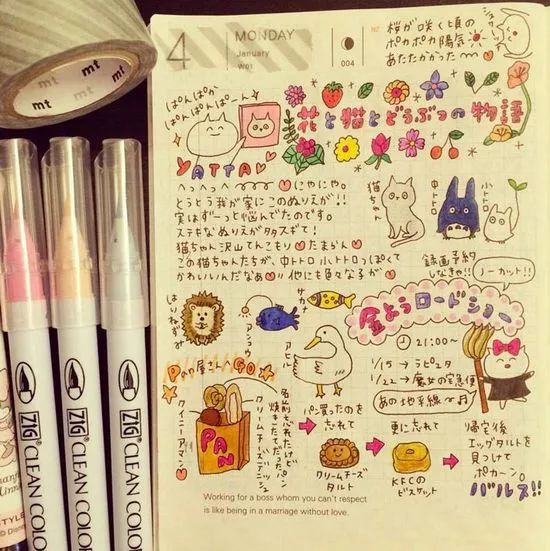 mt
mt
mt
4
MONDAY
January
W01
004
桜が咲く頃の
ポカポカ陽気
あたたかかったー
ぱんぱか
ぱんぱんぱーん
YATTA
花と猫とどうぶつの物語
へっへっへ
にやにや。
とうとう我が家にこのぬりえが!!
実はずーっと悩んでたのです。
ステキなぬりえがタタズギて!
猫ちゃん沢山てんこもり たまらん
この猫ちゃんたちが、中トトロ 小トトロっぽくて
かわいいんだなぁ 他にも色々な子が
猫ちゃん
中トトロ
小トトロ
録画予約
しなきゃ!!
ノーカット!!
はりねずみ
アンコウ
サカナ
アヒル
金ようロードショー
21:00〜
1/15 → ラピュタ
1/22 → 魔女の宅急便
あの地平線
Pan屋さん GO
PAN
クイニーアマン
クリームチーズデニッシュ
名前忘れたけど
焼きたてだったパン
パン買ったのを
忘れて
クリームチーズ
タルト
更に忘れて
KFCの
ビスケット
帰宅後
エッグタルトを
見つけて
ポカーン。
バルス!!
Working for a boss whom you can't respect
is like being in a marriage without love.
ZIG CLEAN COLO
ZIG CLEAN COLOR
ZIG CLEAN COLOR
STYLE